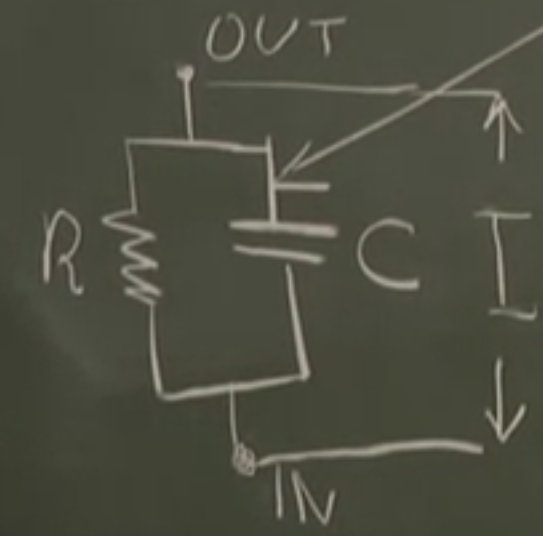 OUT
R
C
I
IN